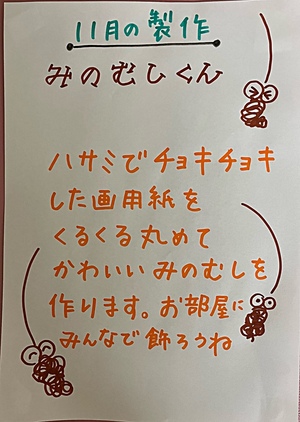 11月の製作
みのむしくん
ハサミでチョキチョキ
した画用紙を
くるくる丸めて
かわいいみのむしを
作ります。お部屋に
みんなで飾ろうね